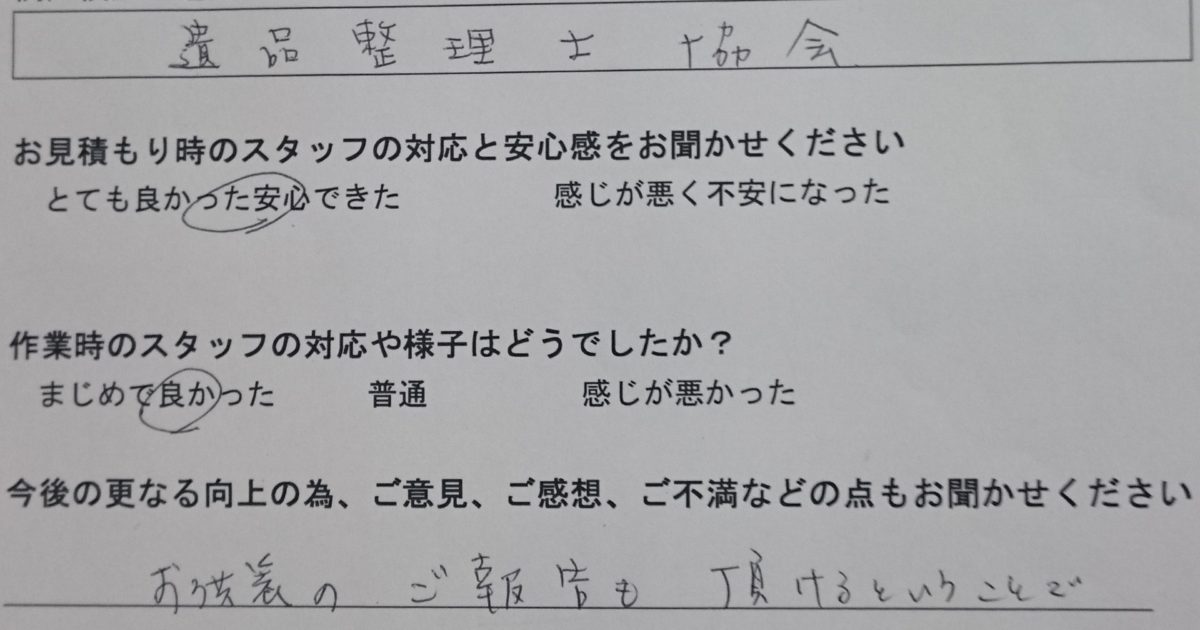 遺品整理士協会
お見積もり時のスタッフの対応と安心感をお聞かせください
とても良かった安心できた 感じが悪く不安になった
作業時のスタッフの対応や様子はどうでしたか?
まじめで良かった 普通 感じが悪かった
今後の更なる向上の為、ご意見、ご感想、ご不満などの点もお聞かせください
お供養の ご報告も 頂けるということで